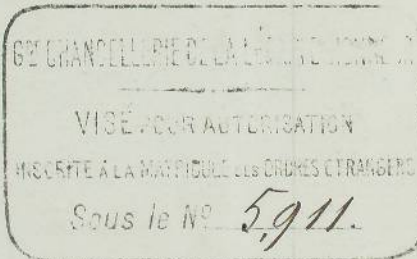 Gde CHANCELLERIE DE LA LÉGION D'HONNEUR
VISÉ POUR AUTORISATION
INSCRITE A LA MATRICULE DES ORDRES ETRANGERS
Sous le No 5,911.